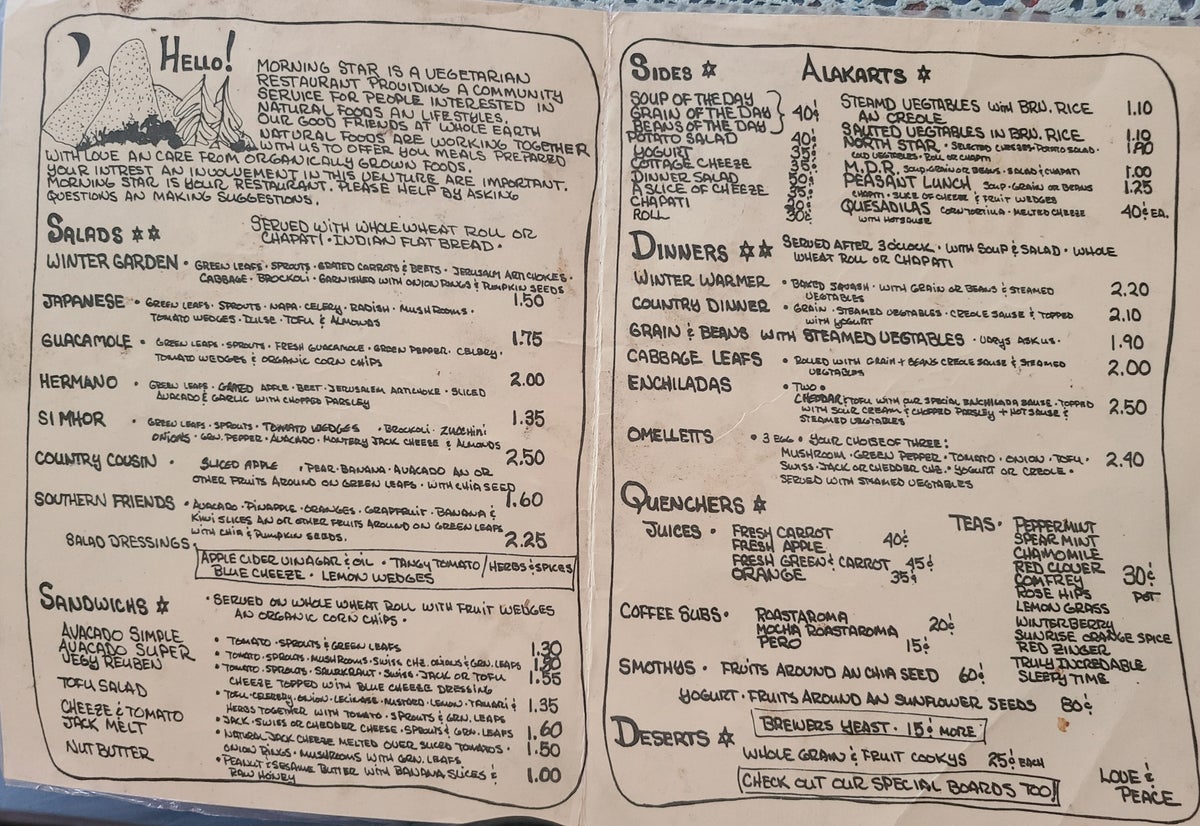 HELLO!
MORNING STAR IS A VEGETARIAN
RESTAURANT PROVIDING A COMMUNITY
SERVICE FOR PEOPLE INTERESTED IN
NATURAL FOODS AN LIFESTYLES.
OUR GOOD FRIENDS AT WHOLE EARTH
NATURAL FOODS ARE WORKING TOGETHER
WITH US TO OFFER YOU MEALS PREPARED
WITH LOVE AN CARE FROM ORGANICALLY GROWN FOODS.
YOUR INTREST AN INVOLVEMENT IN THIS VENTURE ARE IMPORTANT.
MORNING STAR IS YOUR RESTAURANT. PLEASE HELP BY ASKING
QUESTIONS AN MAKING SUGGESTIONS.
SALADS ✡✡ SERVED WITH WHOLE WHEAT ROLL OR
CHAPATI · INDIAN FLAT BREAD ·
WINTER GARDEN · GREEN LEAFS · SPROUTS · GRATED CARROTS & BEETS · JERUSALM ARTICHOKES ·
CABBAGE · BROCKOLI · GARNISHED WITH ONION RINGS & PUMPKIN SEEDS
1.50
JAPANESE · GREEN LEAFS · SPROUTS · NAPA · CELERY · RADISH · MUSHROOMS ·
TOMATO WEDGES · DULSE · TOFU & ALMONDS
1.75
GUACAMOLE · GREEN LEAFS · SPROUTS · FRESH GUACAMOLE · GREEN PEPPER · CELERY ·
TOMATO WEDGES & ORGANIC CORN CHIPS
2.00
HERMANO · GREEN LEAFS · GRATED APPLE · BEET · JERUSALEM ARTICHOKE · SLICED
AVACADO & GARLIC WITH CHOPPED PARSLEY
1.35
SIMHOR · GREEN LEAFS · SPROUTS · TOMATO WEDGES · BROCKOLI · ZUCCHINI
ONIONS · GRN. PEPPER · AVACADO · MONTERY JACK CHEESE & ALMONDS
2.50
COUNTRY COUSIN · SLICED APPLE · PEAR · BANANA · AVACADO AN OR
OTHER FRUITS AROUND ON GREEN LEAFS · WITH CHIA SEED
1.60
SOUTHERN FRIENDS · AVACADO · PINAPPLE · ORANGES · GRAPFRUIT · BANANA &
KIWI SLICES AN OR OTHER FRUITS AROUND ON GREEN LEAFS
WITH CHIA & PUMPKIN SEEDS. 2.25
SALAD DRESSINGS ·
APPLE CIDER VINAGAR & OIL · TANGY TOMATO / HERBS & SPICES
BLUE CHEEZE · LEMON WEDGES
SANDWICHS ✡ · SERVED ON WHOLE WHEAT ROLL WITH FRUIT WEDGES
AN ORGANIC CORN CHIPS ·
AVACADO SIMPLE · TOMATO · SPROUTS & GREEN LEAFS 1.30
AVACADO SUPER · TOMATO · SPROUTS · MUSHROOMS · SWISS CHZ. ONIONS & GRN. LEAFS
VEGY REUBEN · TOMATO · SPROUTS · SAURKRAUT · SWISS · JACK OR TOFU
CHEEZE TOPPED WITH BLUE CHEESE DRESSING 1.55
TOFU SALAD · TOFU · CELEREY · ONION · LECINASE · MUSTARD · LEMON · TAMARI &
HERBS TOGETHER WITH TOMATO · SPROUTS & GRN. LEAFS 1.35
CHEEZE & TOMATO · JACK · SWISS OR CHEDDER CHEESE · SPROUTS & GRN. LEAFS 1.60
JACK MELT · NATURAL JACK CHEEZE MELTED OVER SLICED TOMATOS ·
ONION RINGS · MUSHROOMS WITH GRN. LEAFS 1.50
NUT BUTTER · PEANUT & SESAME BUTTER WITH BANANA SLICES &
RAW HONEY 1.00
SIDES ✡
SOUP OF THE DAY
GRAIN OF THE DAY 40¢
BEANS OF THE DAY
POTATO SALAD 40¢
YOGURT 35¢
COTTAGE CHEEZE 35¢
DINNER SALAD
A SLICE OF CHEEZE 35¢
CHAPATI
ROLL 30¢
ALAKARTS ✡
STEAMD VEGTABLES WITH BRN. RICE 1.10
AN CREOLE
SAUTED VEGTABLES IN BRN. RICE 1.10
NORTH STAR · SELECTED CHEEZES · POTATO SALAD ·
COLD VEGTABLES · ROLL OR CHAPATI
M.D.R. SOUP · GRAIN OR BEANS · SALAD & CHAPATI 1.00
PEASANT LUNCH SOUP · GRAIN OR BEANS 1.25
CHAPATI · SLICE OF CHEEZE & FRUIT WEDGES
QUESADILAS CORN TORTILLA · MELTED CHEEZE 40¢ EA.
WITH HOT SAUSE
DINNERS ✡✡ SERVED AFTER 3 OCLOCK · WITH SOUP & SALAD · WHOLE
WHEAT ROLL OR CHAPATI
WINTER WARMER · BAKED SQUASH · WITH GRAIN OR BEANS & STEAMED
VEGTABLES 2.20
COUNTRY DINNER · GRAIN · STEAMED VEGTABLES · CREOLE SAUSE & TOPPED
WITH YOGURT 2.10
GRAIN & BEANS WITH STEAMED VEGTABLES · VARYS ASK US · 1.90
CABBAGE LEAFS · ROLLED WITH GRAIN + BEANS CREOLE SAUSE & STEAMED
VEGTABLES 2.00
ENCHILADAS · TWO ·
CHEDDAR & TOFU WITH OUR SPECIAL ENCHILADA SAUSE · TOPPED
WITH SOUR CREAM & CHOPPED PARSLEY + HOT SAUSE &
STEAMED VEGTABLES 2.50
OMELLETTS · 3 EGG · YOUR CHOISE OF THREE:
MUSHROOM · GREEN PEPPER · TOMATO · ONION · TOFU ·
SWISS · JACK OR CHEDDER CHZ. · YOGURT OR CREOLE ·
SERVED WITH STEAMED VEGTABLES
2.40
QUENCHERS ✡
JUICES · FRESH CARROT
FRESH APPLE 40¢
FRESH GREEN & CARROT 45¢
ORANGE 35¢
COFFEE SUBS · ROASTAROMA
MOCHA ROASTAROMA 20¢
PERO 15¢
TEAS · PEPPERMINT
SPEARMINT
CHAMOMILE
RED CLOVER
COMFREY 30¢
ROSE HIPS POT
LEMON GRASS
WINTERBERRY
SUNRISE ORANGE SPICE
RED ZINGER
TRULY INCREDABLE
SLEEPY TIME
SMOTHYS · FRUITS AROUND AN CHIA SEED 60¢
YOGURT · FRUITS AROUND AN SUNFLOWER SEEDS 80¢
BREWERS YEAST · 15¢ MORE
DESERTS ✡
WHOLE GRAIN & FRUIT COOKYS 25¢ EACH
CHECK OUT OUR SPECIAL BOARDS TOO!
LOVE &
PEACE